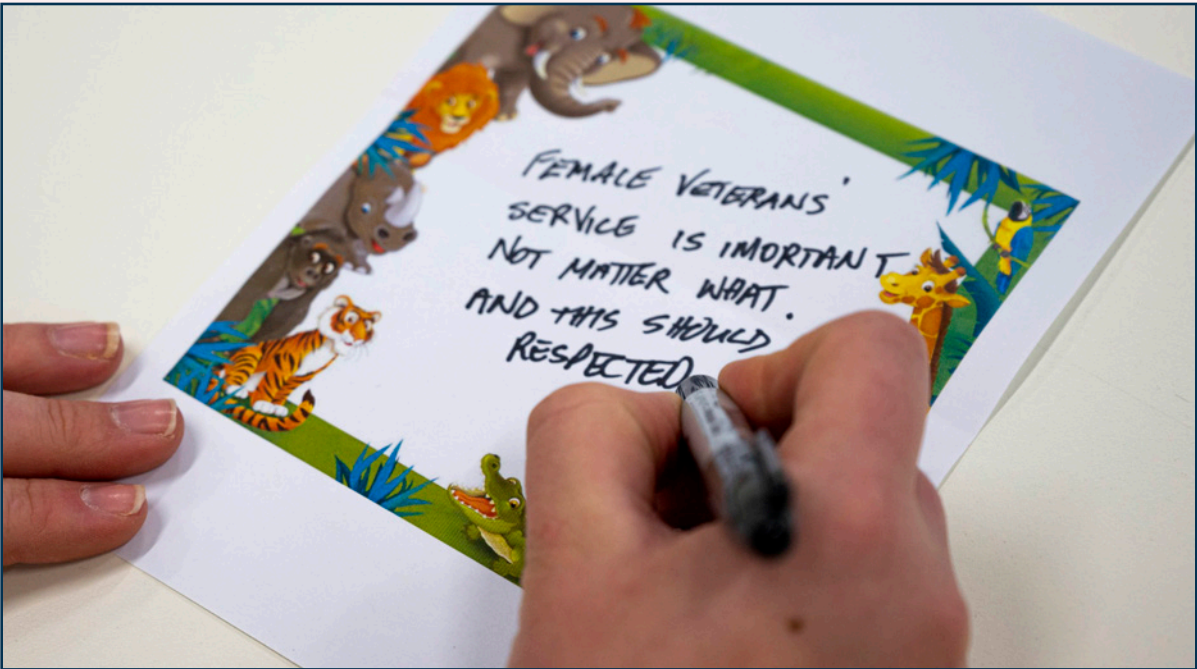 FEMALE VETERANS'
SERVICE IS IMORTANT
NOT MATTER WHAT.
AND THIS SHOULD
RESPECTED